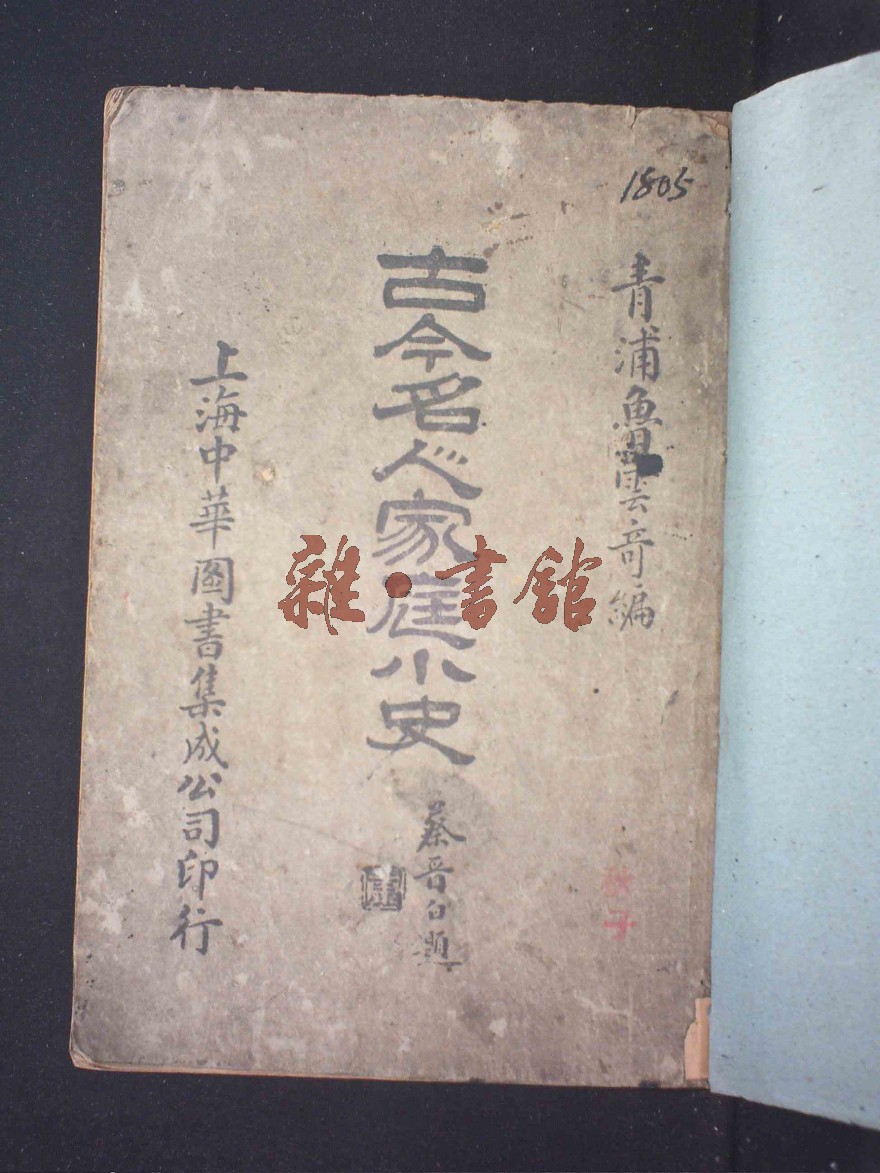 1805
青浦魯雲奇編
古今名人家庭小史
蔡晋白題
上海中華圖書集成公司印行
雜·書館
子